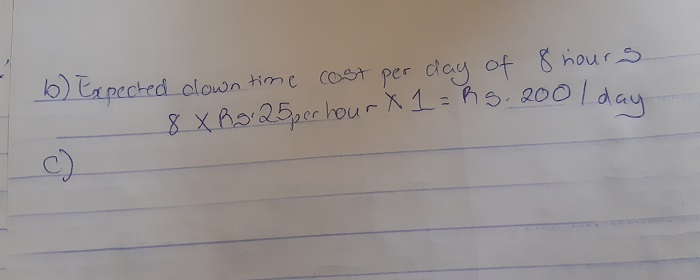 b) Expected down time cost per day of 8 hours
8 X Rs. 25 per hour X 1 = Rs. 200 / day
c)